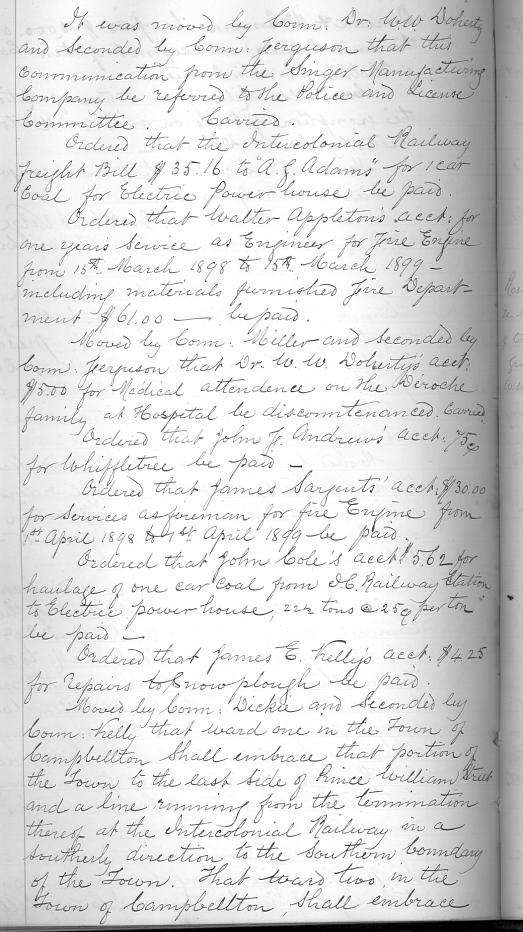 It was moved by Conn: Dr: W W Doherty
and seconded by Conn: Ferguson that this
Communication from the Singer Manufacturing
Company be referred to the Police and License
Committee. Carried.
Ordered that the Intercolonial Railway
freight Bill $35.16 to "A. E. Adams" for 1 car
Coal for Electric Power house be paid.
Ordered that Walter Appleton's acct: for
one years service as Engineer for Fire Engine
from 15th March 1898 to 15th March 1899 –
including materials furnished Fire Depart-
ment $61.00 — be paid.
Moved by Conn: Miller and seconded by
Conn: Ferguson that Dr. W. W. Doherty's acct:
$5.00 for Medical attendence on the Deroche
family at Hospital be discountenanced. Carried
Ordered that John F. Andrews' acct: 75¢
for Whiffletree be paid –
Ordered that James Sargents' acct: $30.00
for Services as foreman for fire Engine from
1st April 1898 to 1st April 1899 be paid.
Ordered that John Cole's acct $5.62 for
haulage of one car coal from I.C. Railway Station
to Electric power house, 22½ tons @ 25¢ per ton"
be paid –
Ordered that James E. Kelly's acct: $4.25
for repairs to Snow plough be paid.
Moved by Conn: Dickie and Seconded by
Conn: Kelly that ward one in the Town of
Campbellton Shall embrace that portion of
the Town to the East side of Prince William Street
and a line running from the termination
thereof at the Intercolonial Railway in a
Southerly direction to the Southern boundary
of the Town. That ward two, in the
Town of Campbellton, Shall embrace